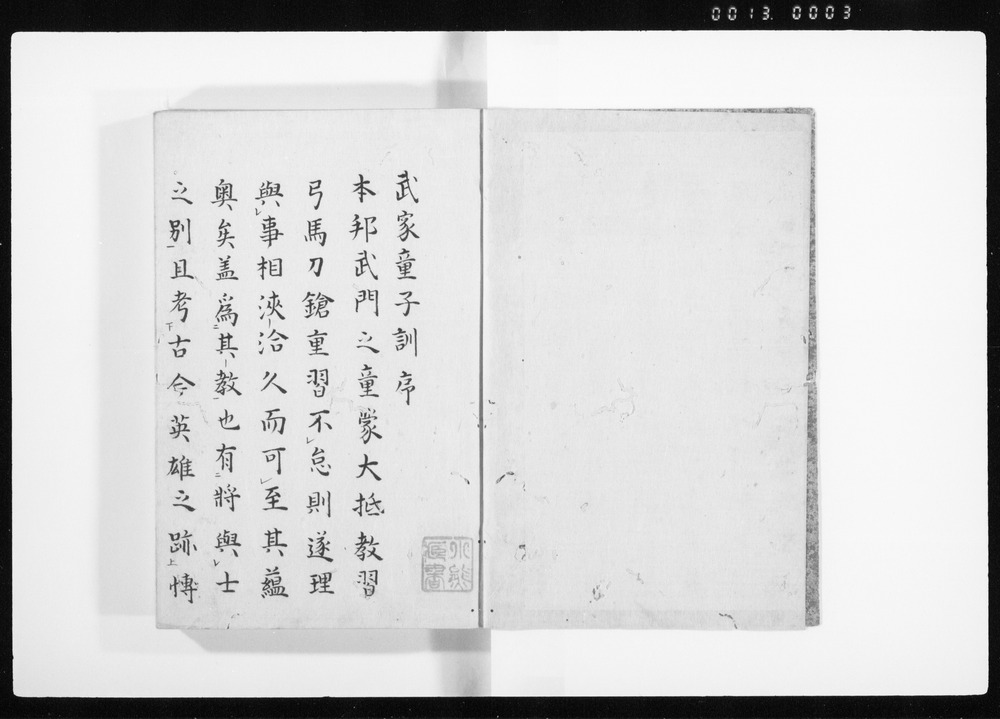 0013. 0003
武家童子訓序
本邦武門之童蒙大抵教習
弓馬刀鎗重習不レ怠則遂理
與レ事相浹-洽久而可レ至其蘊
奥矣盖為二其-教一也有二將與レ士
之別一且考下古今英雄之跡上慱